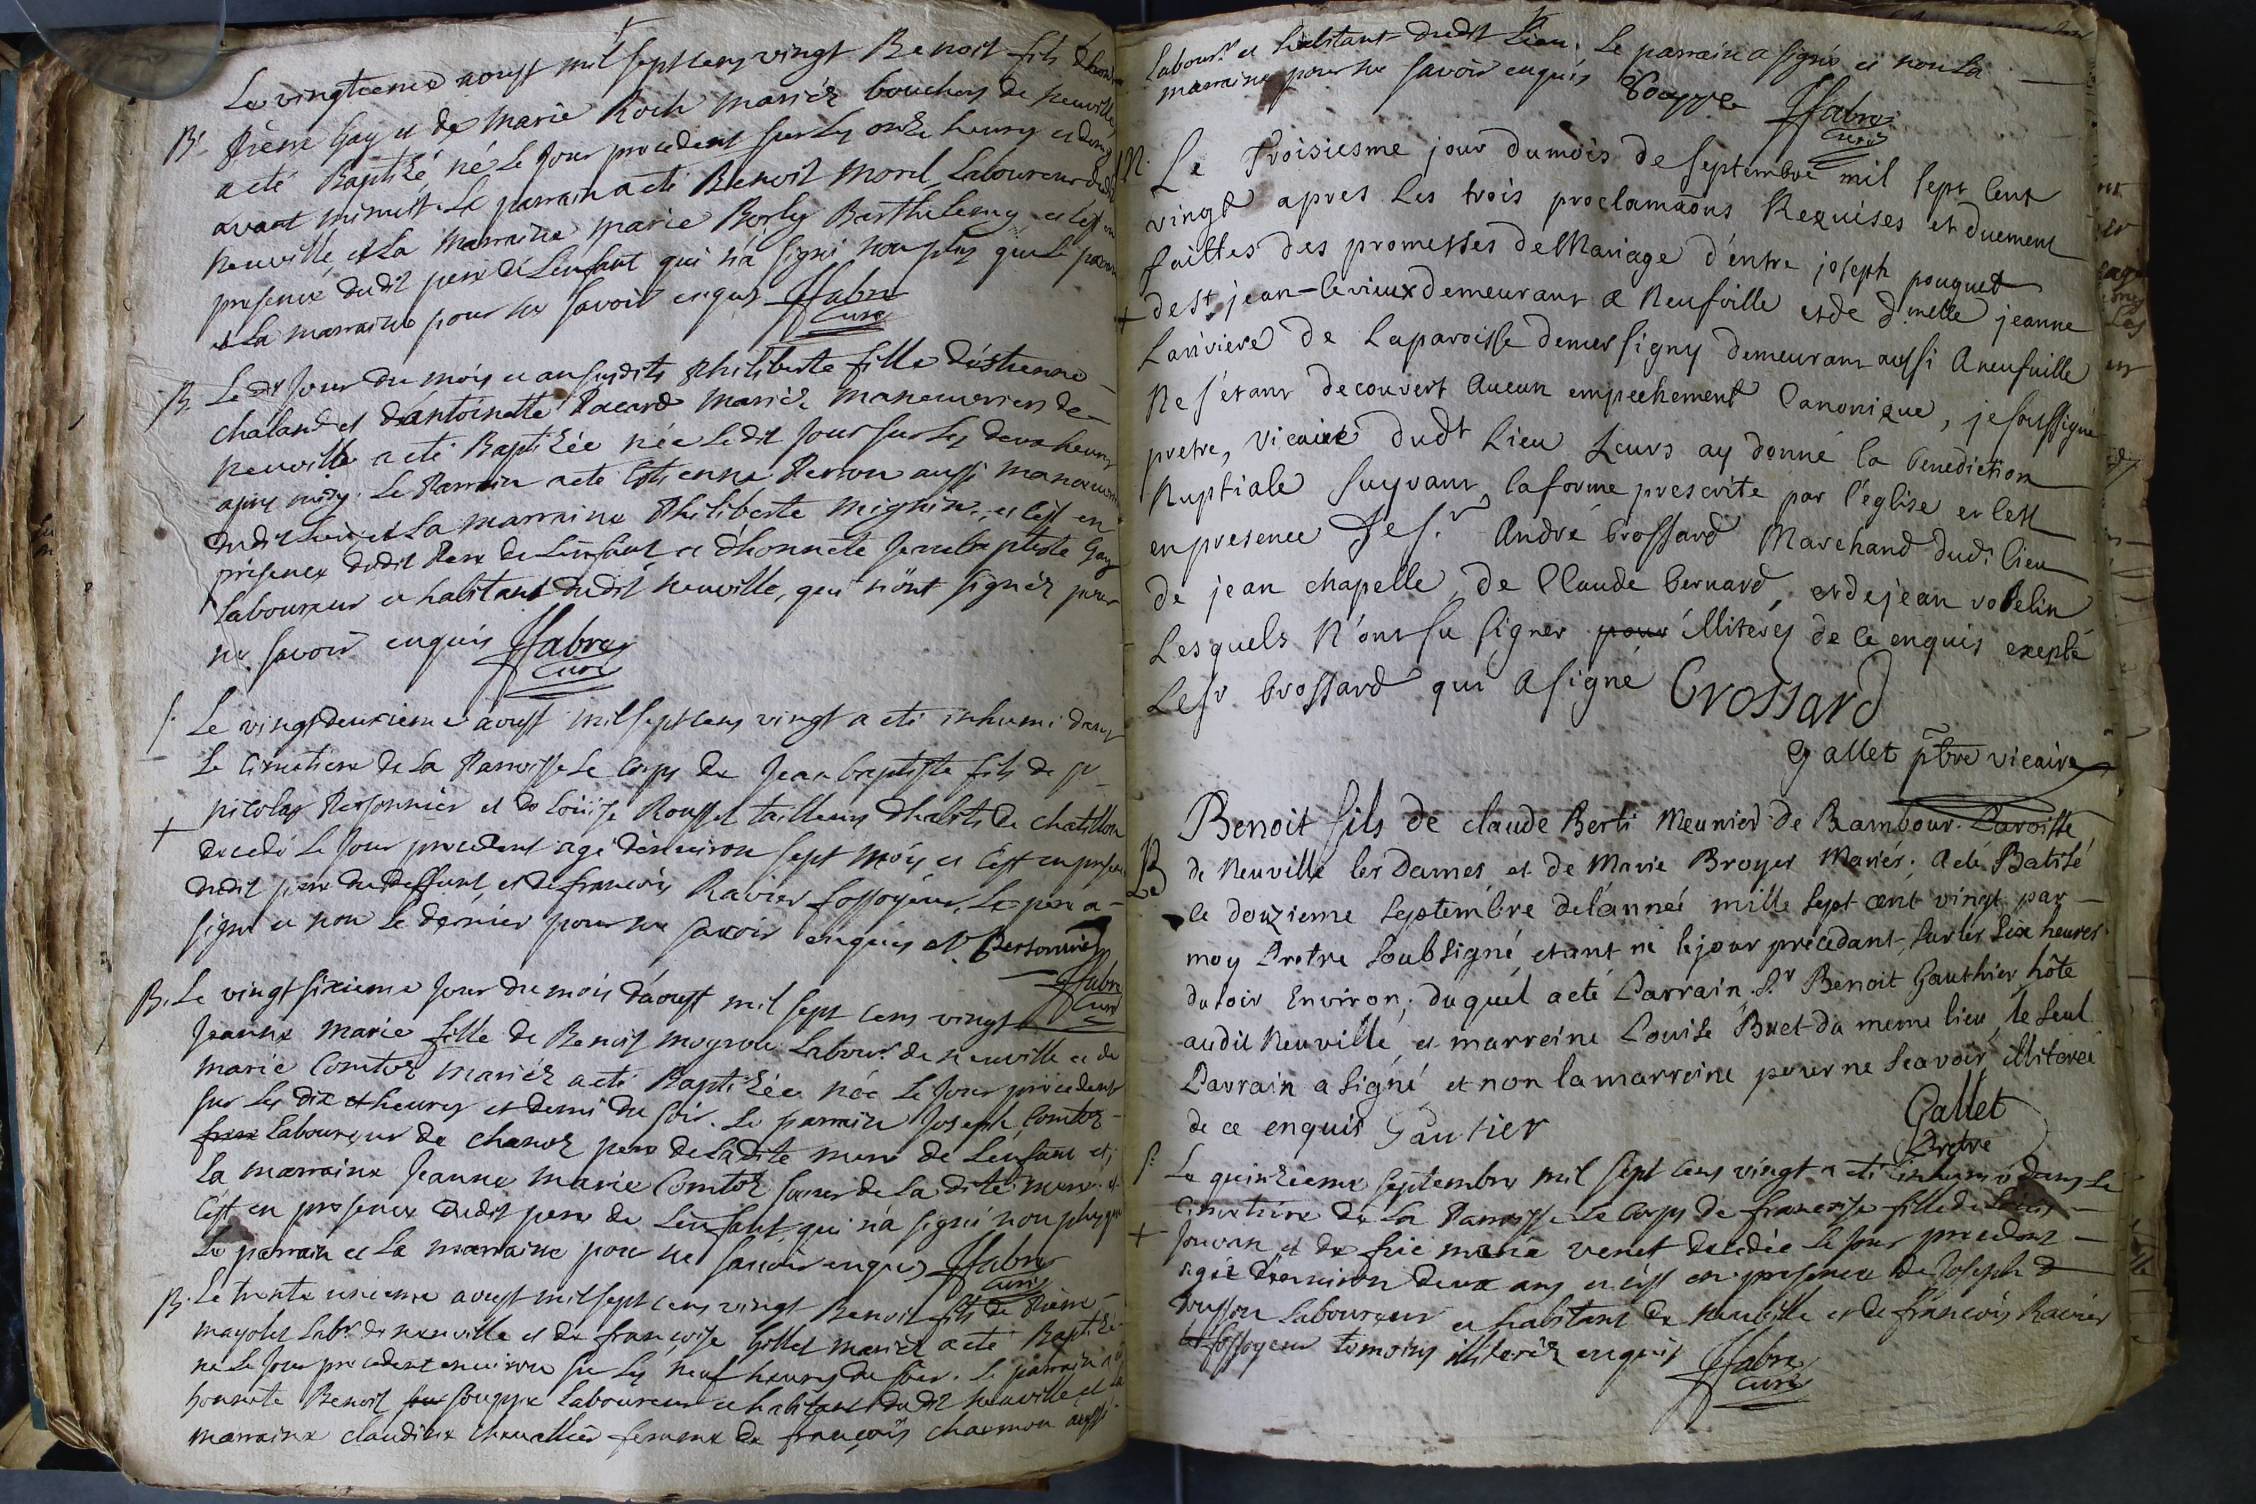 Le vingtieme aoust mil sept cens vingt Benoit fils d'honn
B. Pierre Gay et de Marie Roch mariéz bouchers de neuville
a eté Baptizé né le Jour precedent sur les onze heures et demy
avant minuit. Le parrain a eté Benoit Morel Laboureur dudit
neuville et La marraine marie Borly Barthelemy et c'est en
presence dudit pere de L'enfant qui n'a signé non plus que le parrain
et La marraine pour ne savoir enquis JFabre
curé
B. Le dt Jour du mois et an susdits Philiberte fille d'estienne
chaland et d'antoinette Pacard mariéz manouvriers de
neuville a eté Baptizée née ledit Jour sur les deux heures
apres midy. Le Parrain a eté Estienne Perron aussi manouvrier
dudit Lieu et La marraine Philiberte mignin, et c'est en
présence dudit Pere de L'enfant et d'honnete Jeanbaptiste Gay
Laboureur et habitant dudit neuville, qui n'ont signéz pour
ne savoir enquis JFabre
curé
S. Le vingtdeuxieme aoust mil sept cens vingt a eté inhumé dans
le cimetiere de La Parroisse le corps de Jean baptiste fils de Sr
+ nicolas Personnier et de Loüise Rousset tailleurs d'habits de chatillon
decedé le Jour precedent agé d'environ sept mois et c'est en presence
dudit pere du deffunt, et de françois Ravier fossoyeur, Le pere a
signé et non le dernier pour ne savoir enquis N. Personnier
JFabre
curé
B. Le vingt sixieme Jour du mois d'aoust mil sept cens vingt
Jeanne marie fille de Benoit moyroud Labour. de neuville et de
marie Comtoz mariéz a eté Baptizée née le Jour precedent
sur les dix heures et demi du soir. Le parrain Joseph Comtoz
Laboureur de chanoz pere de Ladite mere de L'enfant et
La marraine Jeanne marie Comtoz soeur de La dite mere et
c'est en presence dudit pere de L'enfant qui n'a signé non plus que
le parrain et La marraine pour ne savoir enquis JFabre
curé
B. Le trente unieme aoust mil sept cens vingt Benoit fils de Pierre
mayolet Labr de neuville et de françoise Gillet mariéz a eté Baptizé
né le Jour precedent environ sur les neuf heures du soir. Le parrain a eté
honnete Benoit Pouppe Laboureur et habitant dudit neuville et La
marraine claudine chevallier femme de françois charmon aussi
Labour. et habitant dudit Lieu. Le parrain a signé et non La
marraine pour ne savoir enquis Pouppe JFabre
curé
M. Le Troisiesme jour dumois de septembre mil sept cent
vingt apres les trois proclamaons Requises et duement
faittes des promesses de Mariage d'entre joseph pouquet
+ de st jean-levieux demeurant a Neufville et de d.melle jeanne
Lariviere de Laparoisse demersigny demeurant aussi Aneufville
Ne s'étant decouvert Aucun empechement Canonique, je soussigné
pretre, vicaire dudt Lieu Leurs ay donné la benediction
Nuptiale suyvant laforme prescrite par l'église et cest
enpresence De sr André brossard Marchand dudt lieu
de jean chapelle, de Claude bernard, et dejean robelin
Lesquels N'ont su signer pour illiterez de ce enquis exepté
Lesr brossard qui Asigné Brossard
Gallet pbre vicaire
Benoit fils de claude Berti Meunier de Rambour. Paroisse
B de Neuville les Dames et de Marie Broyer Mariés. Aeté Batisé
le douzieme septembre del'anneé mille sept cent vingt par
moy Pretre soubsigné etant né lejour précedant, sur les six heures
dusoir Environ, duquel aeté Parrain Sr Benoit Gauthier hôte
audit Neuville et marreine Louise Buet du meme lieu, le seul
Parrain a signé et non lamarreine pour ne scavoir illiterée
de ce enquis Gautier Gallet
Pretre
S. Le quinzieme septembre mil sept cens vingt a eté inhumé dans Le
Cimetiere de La Parroisse le corps de francoise fille de Louis
+ Jouvan et de feüe marie venet decedée le Jour precedent
agée d'environ deux ans et c'est en presence de Joseph
Poussou Laboureur et habitant de neuville et de françois Ravier
fossoyeur temoins illiteréz enquis JFabre
curé